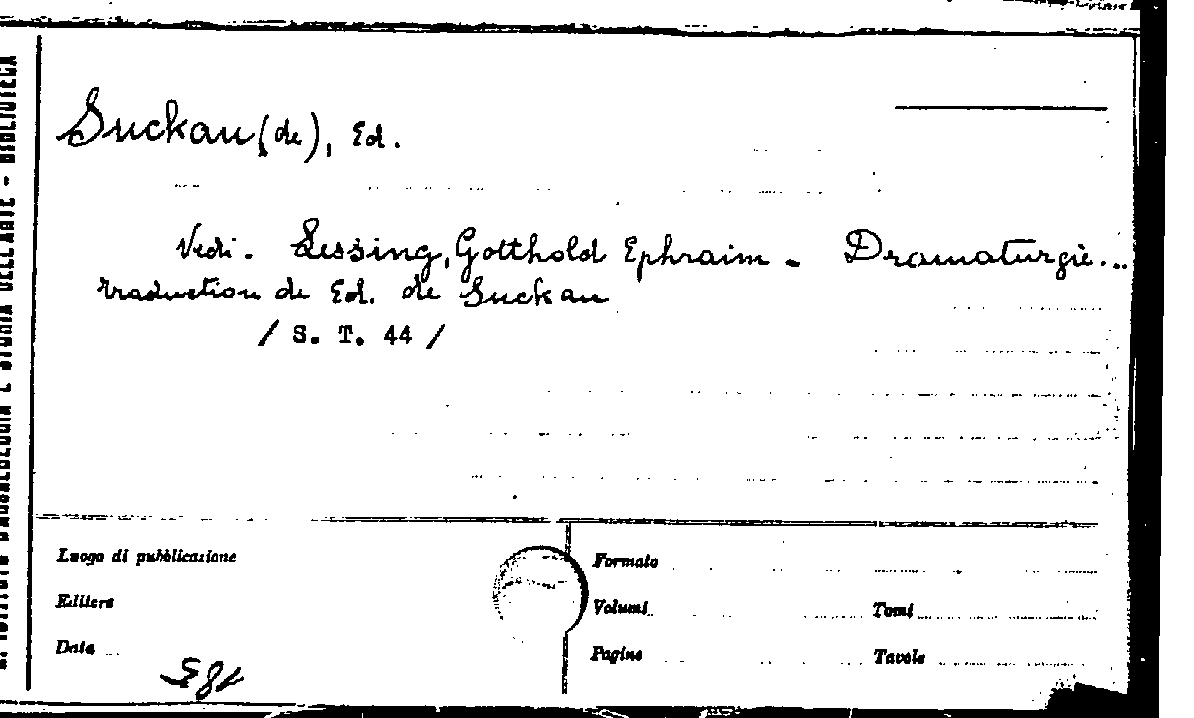 Suckau (de), Ed.
Vedi. Lessing, Gotthold Ephraim - Dramaturgie...
traduction de Ed. de Suckau
/ S. T. 44 /
Luogo di pubblicazione
Editore
Data
Formato
Volumi
Tomi
Pagine
Tavole
R. ISTITUTO D'ARCHEOLOGIA E STORIA DELL'ARTE - BIBLIOTECA